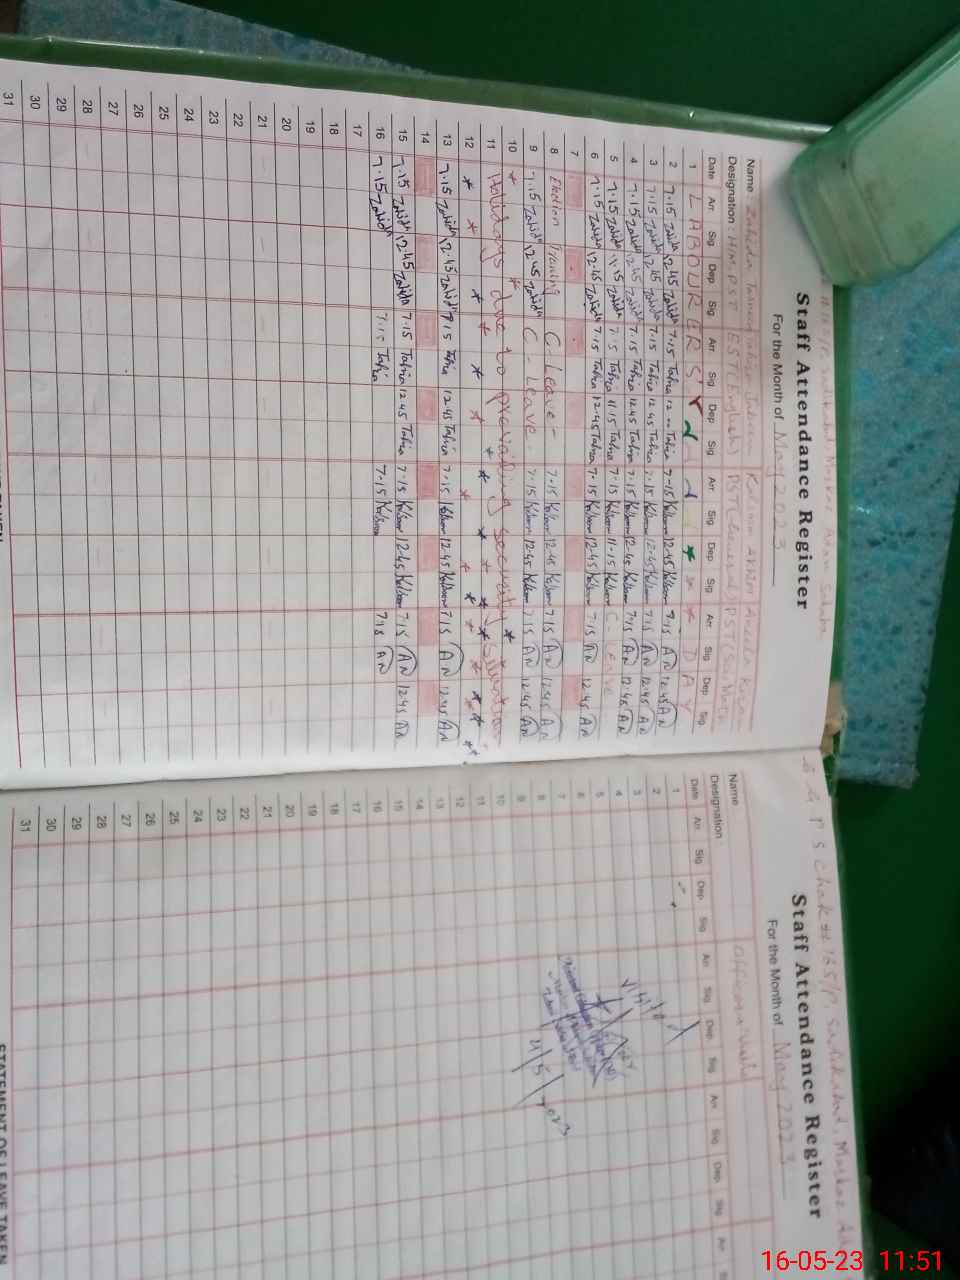 Staff Attendance Register
For the Month of May 2023
Name : Zahida Jabeen Kalsoom Akhtar Aneela
Designation : H/M.PST EST(English) PST(General) PST
Date Arr Sig Dep Sig Arr Sig Dep Sig Arr Sig Dep Sig Arr Sig Dep Sig
1 LABOURER'S DAY
2 7.15 Zahida 12.45 Zahida 7.15 Tahira 12 Tahira 7-15 Kalsoom 12.45 Kalsoom 7.15 AN 12.45 AN
3 7.15 Zahida 12.45 Zahida 7.15 Tahira 12.45 Tahira 7.15 Kalsoom 12.45 Kalsoom 7.15 AN 12.45 AN
4 7.15 Zahida 12.45 Zahida 7.15 Tahira 12.45 Tahira 7.15 Kalsoom 12.45 Kalsoom 7.15 AN 12.45 AN
5 7.15 Zahida 11.15 Zahida 7.15 Tahira 11.15 Tahira 7.15 Kalsoom 11-15 Kalsoom C-Leave
6 7.15 Zahida 12.45 Zahida 7.15 Tahira 12.45 Tahira 7.15 Kalsoom 12.45 Kalsoom 7.15 AN 12.45 AN
7
8 Election Training C-Leave- 7.15 Kalsoom 12.45 Kalsoom 7.15 AN 12.45 AN
9 7.15 Zahida 12.45 Zahida C-Leave. 7.15 Kalsoom 12.45 Kalsoom 7.15 AN 12.45 AN
10
11 Holidays due to prevailing security Situation
12
13 7.15 Zahida 12.45 Zahida 7.15 Tahira 12.45 Tahira 7.15 Kalsoom 12.45 Kalsoom 7.15 AN 12.45 AN
14
15 7.15 Zahida 12.45 Zahida 7.15 Tahira 12.45 Tahira 7.15 Kalsoom 12.45 Kalsoom 7.15 AN 12.45 AN
16 7.15 Zahida 7.15 Tahira 7.15 Kalsoom 7.15 AN
17
18
19
20
21
22
23
24
25
26
27
28
29
30
31
G P S Chak # 125/P, Sadiqabad, Markaz
Staff Attendance Register
For the Month of May 2023
Name
Designation
Date Arr Sig Dep Sig Arr Sig Dep Sig Arr Sig Dep Sig Arr
1
2
3
4
5
6
7
8
9
10
11
12
13
14
15
16
17
18
19
20
21
22
23
24
25
26
27
28
29
30
31
4/5/2023
STATEMENT OF LEAVE TAKEN
16-05-23 11:51